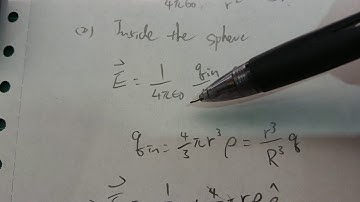 4πε₀ r²
(2) Inside the sphere
E⃗ = 1/4πε₀ qin
qin = 4/3 πr³ ρ = r³/R³ q
E⃗ = 1 4 πrρ r̂